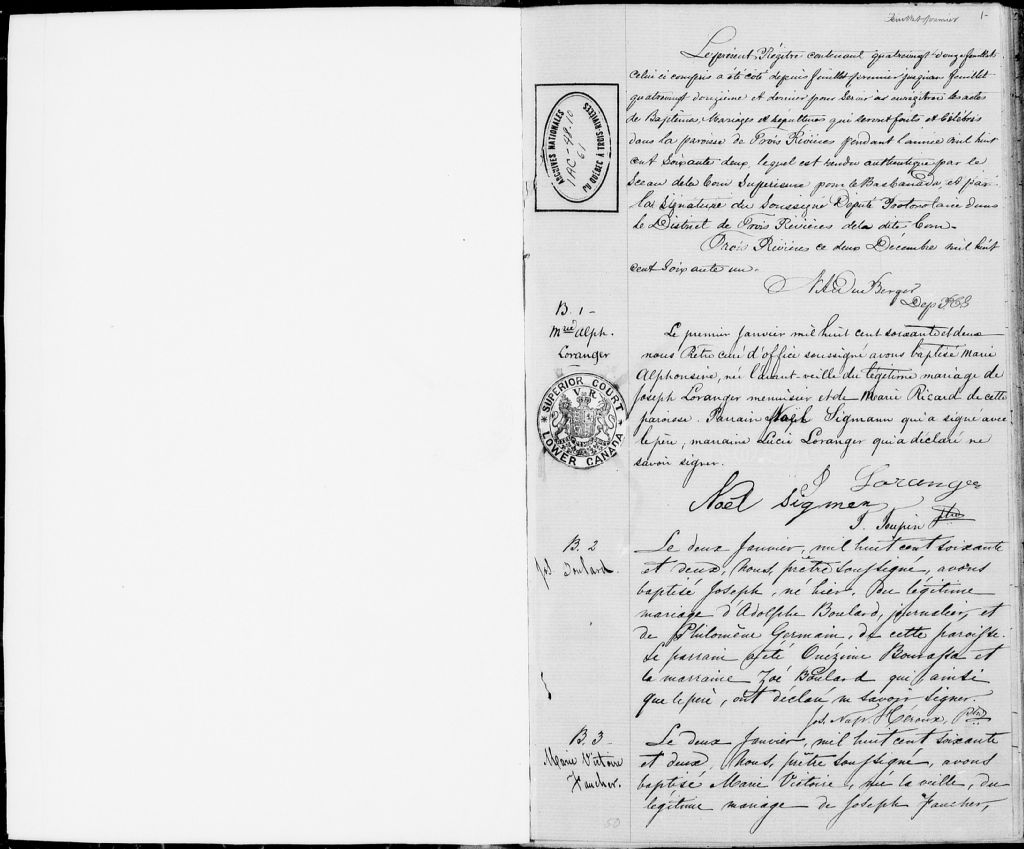 feuillet premier 1-
Le présent Régitre contenant quatrevingt douze feuillets
celui ci compris a été coté depuis feuillet premier jusqu'au feuillet
quatrevingt douzième et dernier pour servir à enrégitrer les actes
de Baptêmes, Mariages et Sépultures qui seront faits et célébrés
dans la paroisse de Trois Rivières pendant l'année mil huit
cent soixante deux, lequel est rendu authentique par le
Sceau de la Cour Supérieure pour le Bas Canada, et par
la signature du Soussigné Député Protonotaire dans
le District de Trois Rivières de la dite Cour.
Trois Rivières ce deux Décembre mil huit
cent soixante un.
Dep
ARCHIVES NATIONALES
1AC-48-10
61
DU QUÉBEC À TROIS-RIVIÈRES
B. 1-
Mrie Alph.
Loranger
SUPERIOR COURT
V R
LOWER CANADA
Le premier Janvier mil huit cent soixante et deux
nous Prêtre curé d'office soussigné avons baptisé Marie
Alphonsine, née l'avant-veille du légitime mariage de
Joseph Loranger menuisier et de Marie Ricard de cette
paroisse. Parrain Sigmann qui a signé avec
le père, marraine Lucie Loranger qui a déclaré ne
savoir signer.
J Loranger
Noël Sigmen
T. Toupin Ptre
B. 2
Jos Boulard.
Le deux Janvier, mil huit cent soixante
et deux, Nous, prêtre soussigné, avons
baptisé Joseph, né hier, du légitime
mariage d'Adolphe Boulard, journalier, et
de Philomène Germain, de cette paroisse.
Le parrain a été Onézime Bourassa et
la marraine Zoé Boulard qui ainsi
que le père, ont déclaré ne savoir signer.
Jos. Nap. Héroux, Ptre
B. 3
Marie Victoire
Faucher.
Le deux Janvier, mil huit cent soixante
et deux, Nous, prêtre soussigné, avons
baptisé Marie Victoire, née la veille, du
légitime mariage de Joseph Faucher,
50